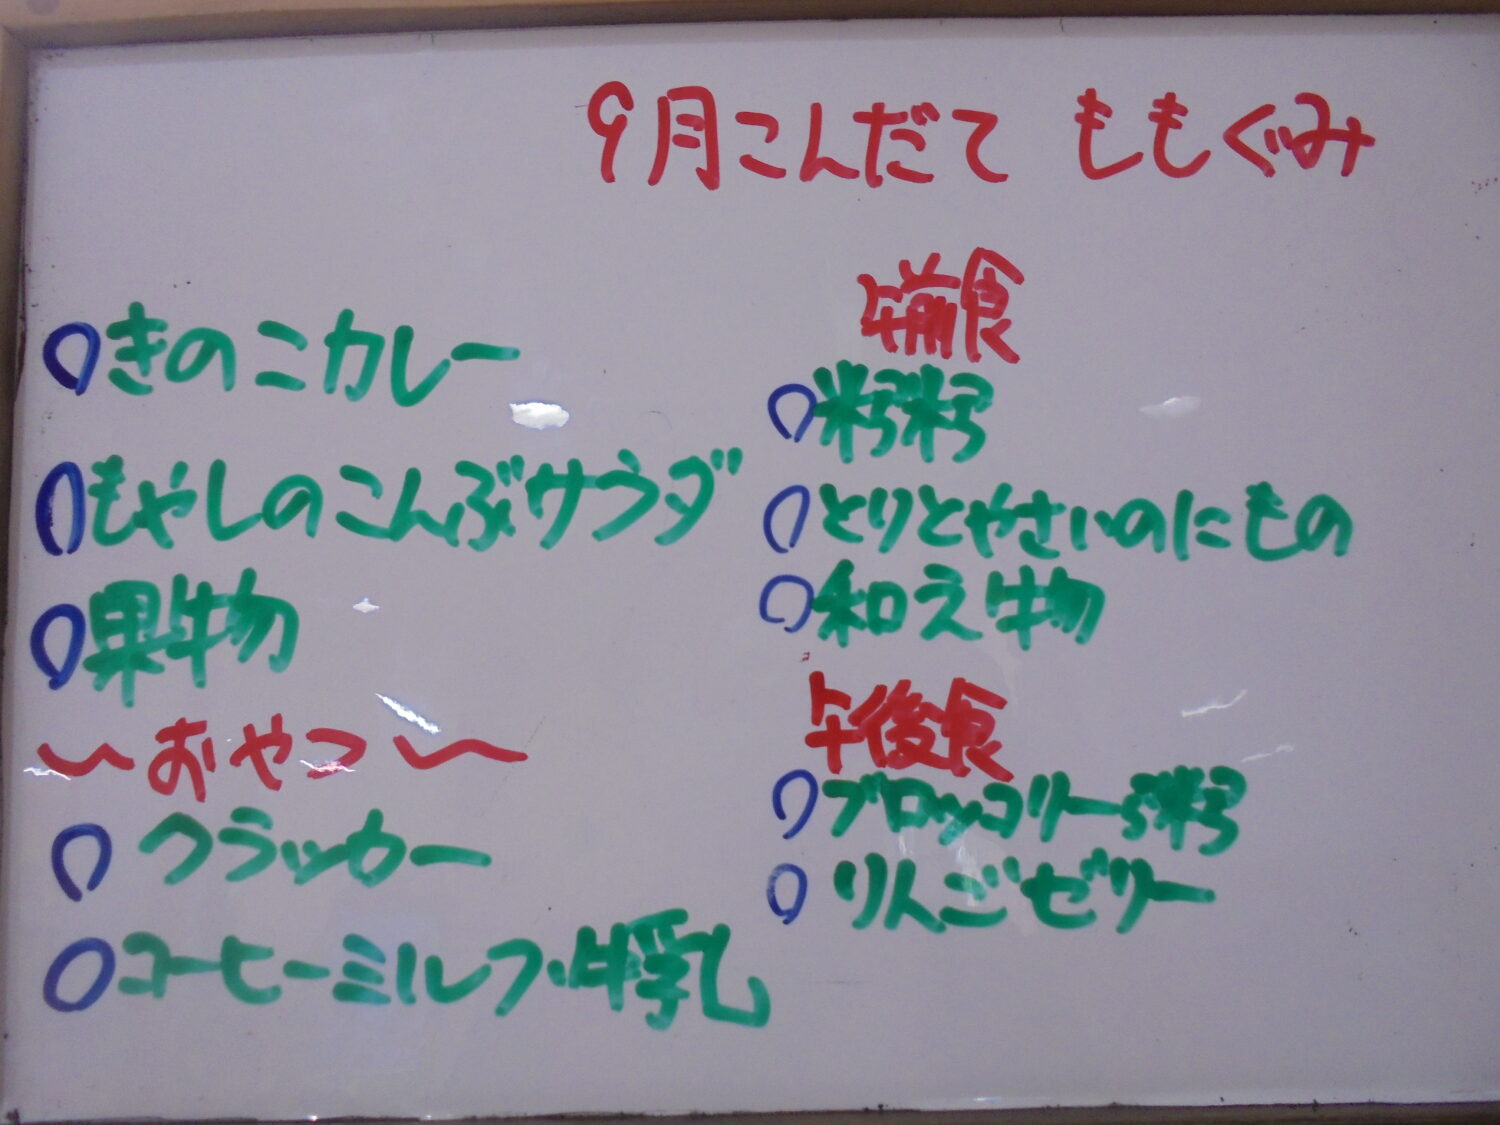 9月こんだて ももぐみ
きのこカレー
もやしのこんぶサラダ
果物
〜おやつ〜
クラッカー
コーヒーミルク・牛乳
午前食
粥粥
とりとやさいのにもの
和え物
午後食
ブロッコリー粥
りんごゼリー